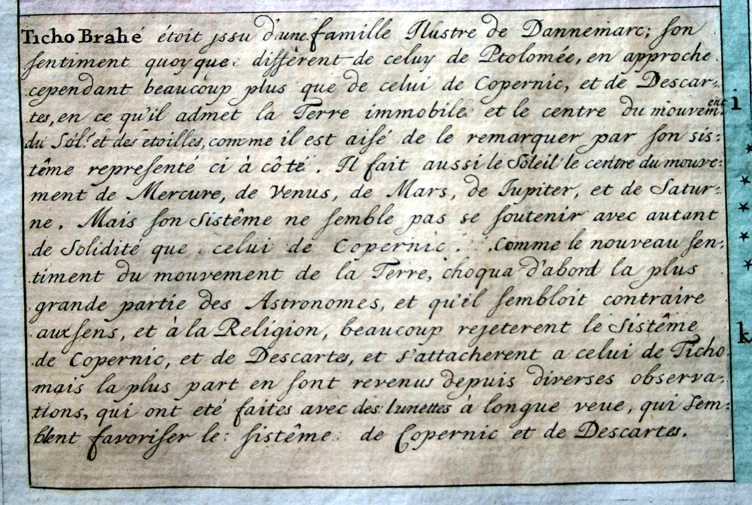 Ticho Brahé étoit jssu d'une famille Jlustre de Dannemarc; son
sentiment quoy que different de celuy de Ptolomée, en approche
cependant beaucoup plus que de celui de Copernic, et de Descar-
tes, en ce qu'il admet la Terre immobile et le centre du mouvem.ent
du Sol.l et des étoilles, comme il est aisé de le remarquer par son sis-
tême representé ci à côté. Il fait aussi le Soleil le centre du mouve-
ment de Mercure, de Venus, de Mars, de Jupiter, et de Satur-
ne. Mais son Sistême ne semble pas se soutenir avec autant
de Solidité que celui de Copernic. Comme le nouveau sen-
timent du mouvement de la Terre, choqua d'abord la plus
grande partie des Astronomes, et qu'il sembloit contraire
aux sens, et à la Religion, beaucoup rejeterent le Sistême
de Copernic, et de Descartes, et s'attacherent a celui de Ticho
mais la plus part en sont revenus depuis diverses observa-
tions, qui ont eté faites avec des lunettes à longue veue, qui sem-
blent favoriser le sistême de Copernic et de Descartes.
i
k